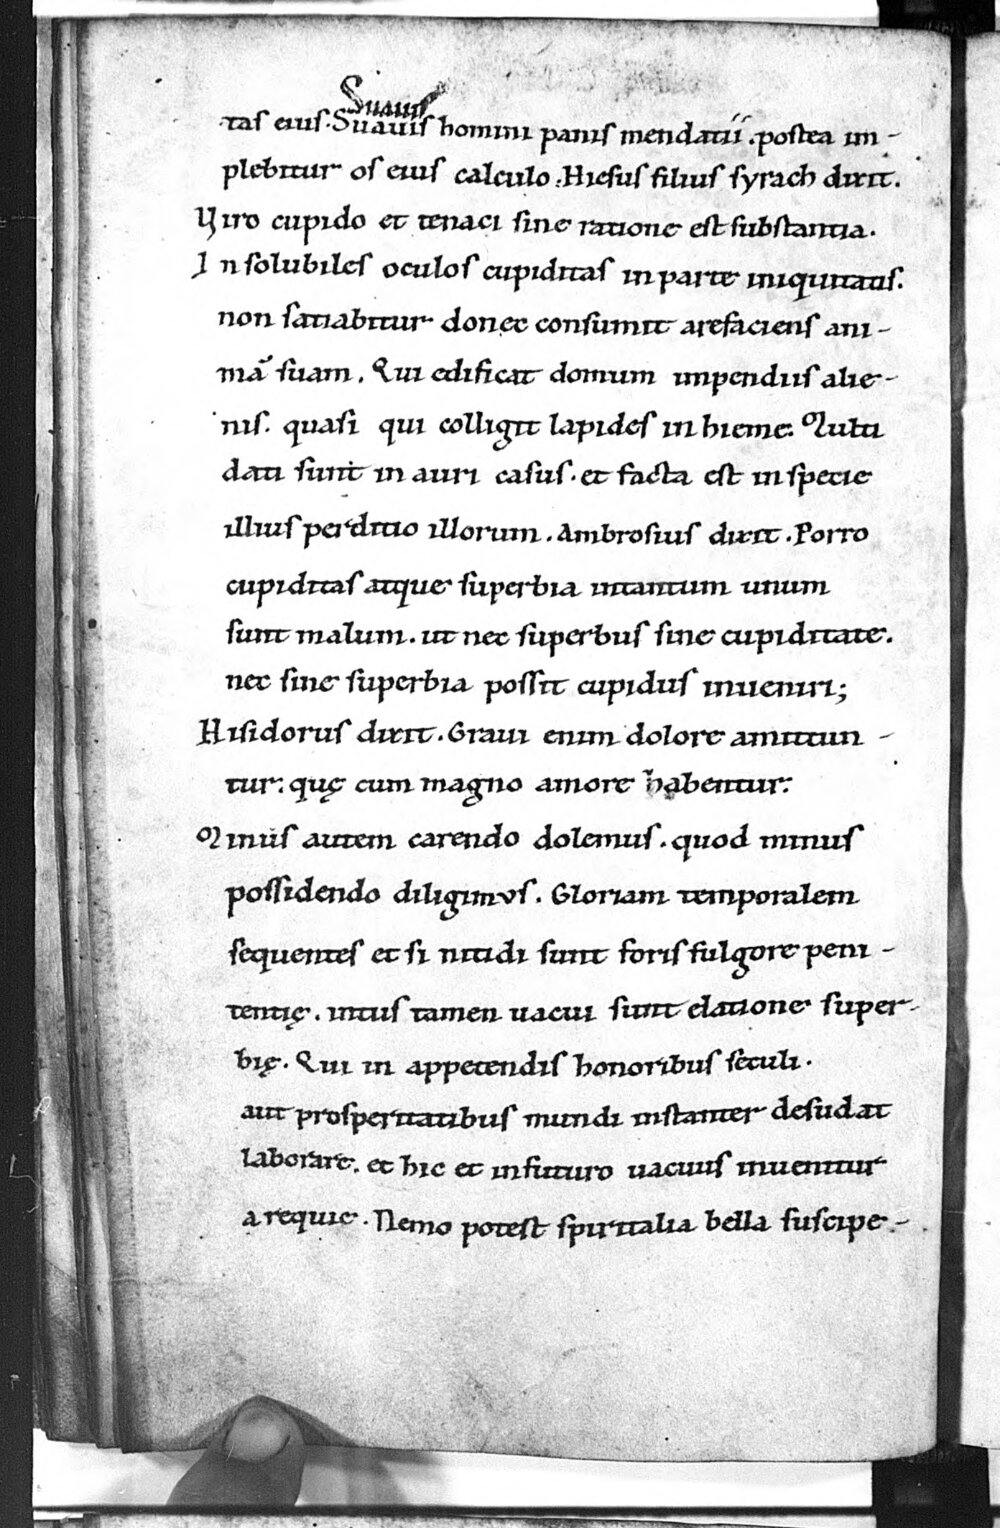 Suauis
tas eius. Suauis homini panis mendatii. postea im-
plebitur os eius calculo. Hiesus filius syrach dixit.
Viro cupido et tenaci sine ratione est substantia.
Insolubiles oculos cupiditas in parte iniquitatis.
non satiabitur donec consumit arefaciens ani-
mā suam. Qui edificat domum impendiis alie-
nis. quasi qui colligit lapides in hieme. Multi
dati sunt in auri casus. et facta est in specie
illius perditio illorum. Ambrosius dixit. Porro
cupiditas atque superbia intantum unum
sunt malum. ut nec superbus sine cupiditate.
nec sine superbia possit cupidus inueniri;
Hisidorus dixit. Graui enim dolore amittun-
tur. quę cum magno amore habentur.
Minus autem carendo dolemus. quod minus
possidendo diligimus. Gloriam temporalem
sequentes et si nitidi sunt foris fulgore peni-
tentię. intus tamen uacui sunt elatione super-
bię. Qui in appetendis honoribus sęculi.
aut prosperitatibus mundi instanter desudat
laborare. et hic et in futuro uacuus inuenitur
a requie. Nemo potest spiritalia bella suscipe-